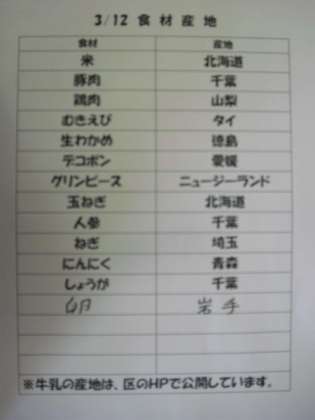 3/12 食材産地
食材 産地
米 北海道
豚肉 千葉
鶏肉 山梨
むきえび タイ
生わかめ 徳島
デコポン 愛媛
グリンピース ニュージーランド
玉ねぎ 北海道
人参 千葉
ねぎ 埼玉
にんにく 青森
しょうが 千葉
卵 岩手
※牛乳の産地は、区のHPで公開しています。